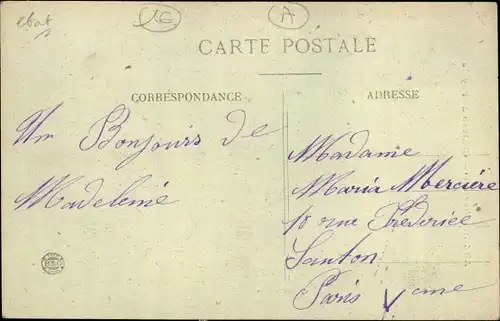 ebat
16
A
CARTE POSTALE
CORRESPONDANCE
ADRESSE
Un Bonjours de
Madeleine
Madame
Maria Mercière
18 rue Fréderice
Santon
Paris Vème